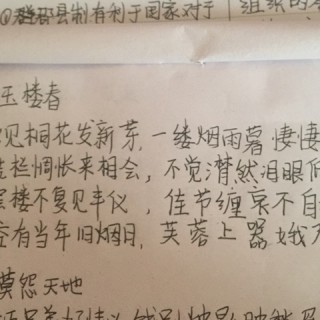 县制有利于国家对于
组织的
玉楼春
见桐花发新芽,一缕烟雨暮悽悽
栏惆怅来相会,不觉潸然泪眼低
楼不复见丰仪,佳节缠哀不自
有当年旧烟日,芙蓉上
莫怨天地